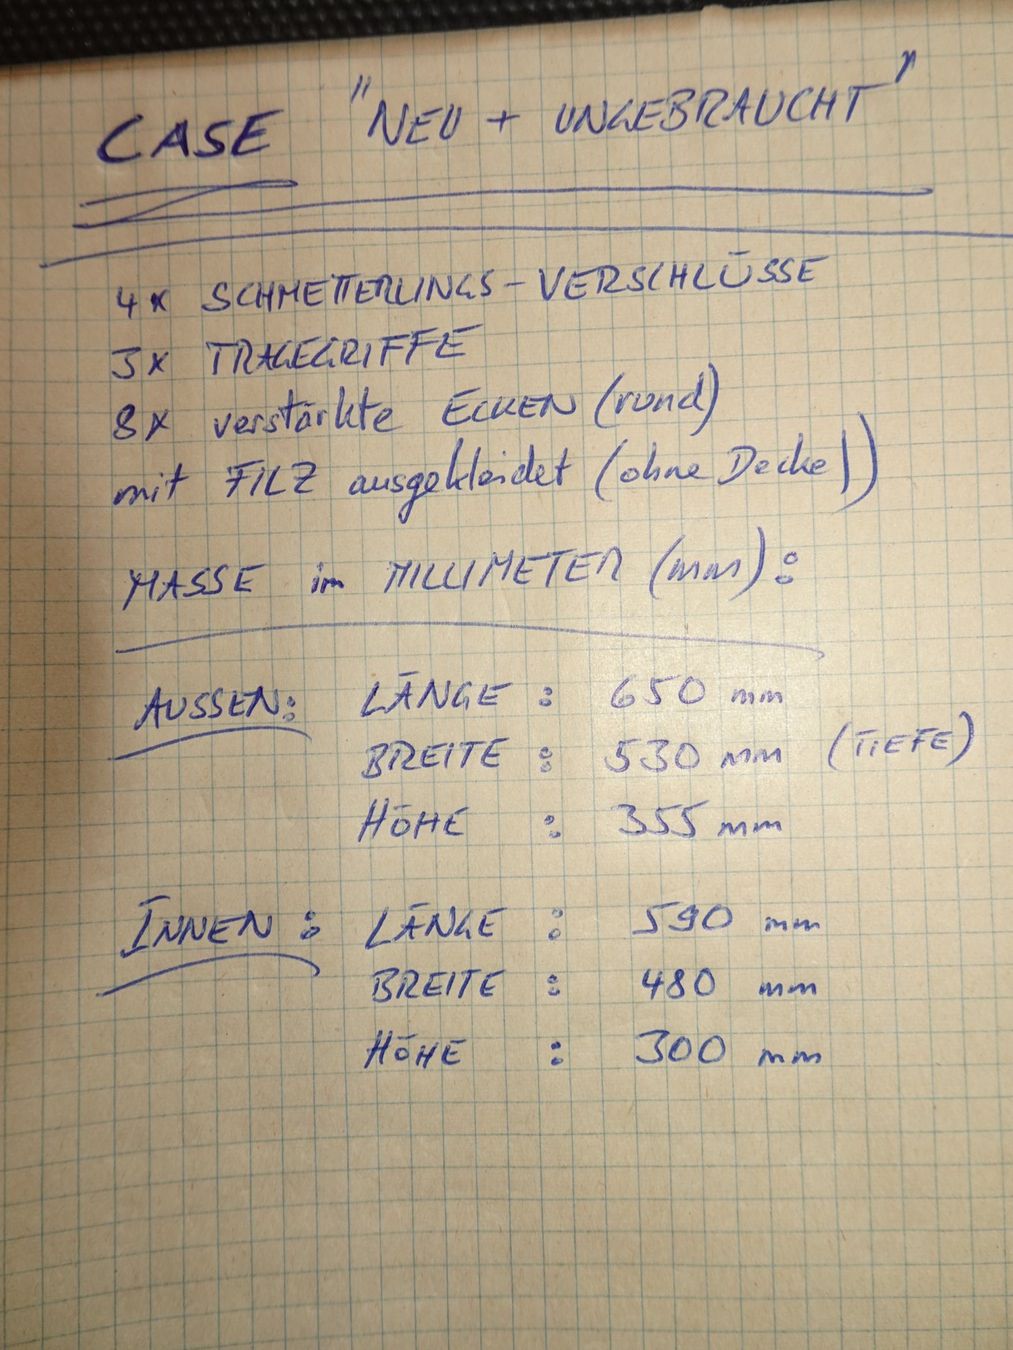 CASE "NEU + UNGEBRAUCHT"
4x SCHMETTERLINGS-VERSCHLÜSSE
3x TRAGEGRIFFE
8x verstärkte ECKEN (rund)
mit FILZ ausgekleidet (ohne Decke))
MASSE im MILLIMETER (mm):
AUSSEN: LÄNGE : 650 mm
BREITE : 530 mm (TIEFE)
HÖHE : 355 mm
INNEN : LÄNGE : 590 mm
BREITE : 480 mm
HÖHE : 300 mm